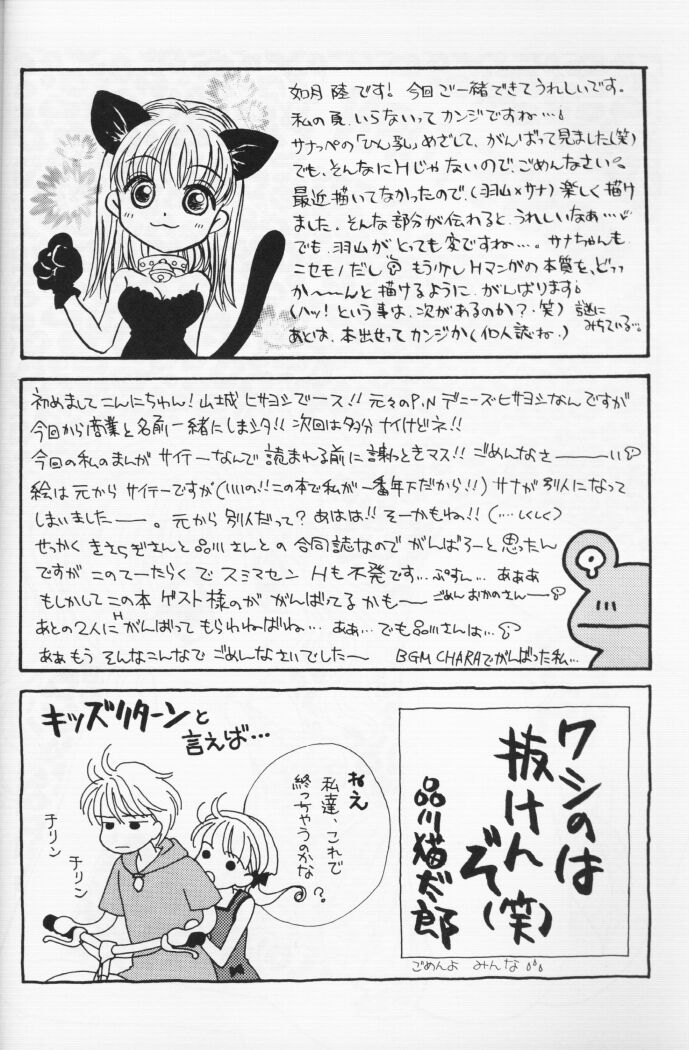 如月 陸です! 今回ご一緒できてうれしいです。
私の頁、いらないってカンジですね…
サナッペの「ひん乳」めざして、がんばって見ました(笑)
でも、そんなにHじゃないので、ごめんなさい。
最近描いてなかったので、(羽山×サナ)楽しく描け
ました。そんな部分が伝わると、うれしいなぁ…
でも、羽山がとっても変ですね…。サナちゃんも
ニセモノだし もう少しHマンガの本質を、どっ
か〜〜んと描けるように、がんばります
(ハッ! という事は、次があるのか?・笑) 謎に
みちている…
あとは、本出せってカンジか(個人誌ね.)
初めましてこんにちゅん! 山城 ヒサヨシでース!! 元々のP.N デニーズヒサヨシなんですが
今回から商業と名前一緒にしまシタ!! 次回は多分ナイけどネ!!
今回の私のまんが サイテーなんで 読まれる前に謝っときマス!! ごめんなさ――い
絵は元から サイテーですが(いいの!! この本で私が一番年下だから!!) サナが別人になって
しまいました――。元から別人だって? あはは!! そーかもね!! (…しくしく)
せっかく きさらぎさんと品川さんとの 合同誌なので がんばろーと思たん
ですが このてーたらくで スミマセン Hも不発です… ぷすん… あぁぁ
もしかしてこの本 ゲスト様のが がんばってるかも― ごめん おかのさん―
あとの2人に H がんばって もらわねばね… ああ… でも品川さんは…
あぁもう そんなこんなで ごめんなさいでした〜 BGM CHARAでがんばった私…
キッズリターンと
言えば…
ねえ
私達、これで
終っちゃうのかな
?
チリン
チリン
ワシのは
抜けん
ぞ(笑)
品川猫太郎
ごめんよ みんな